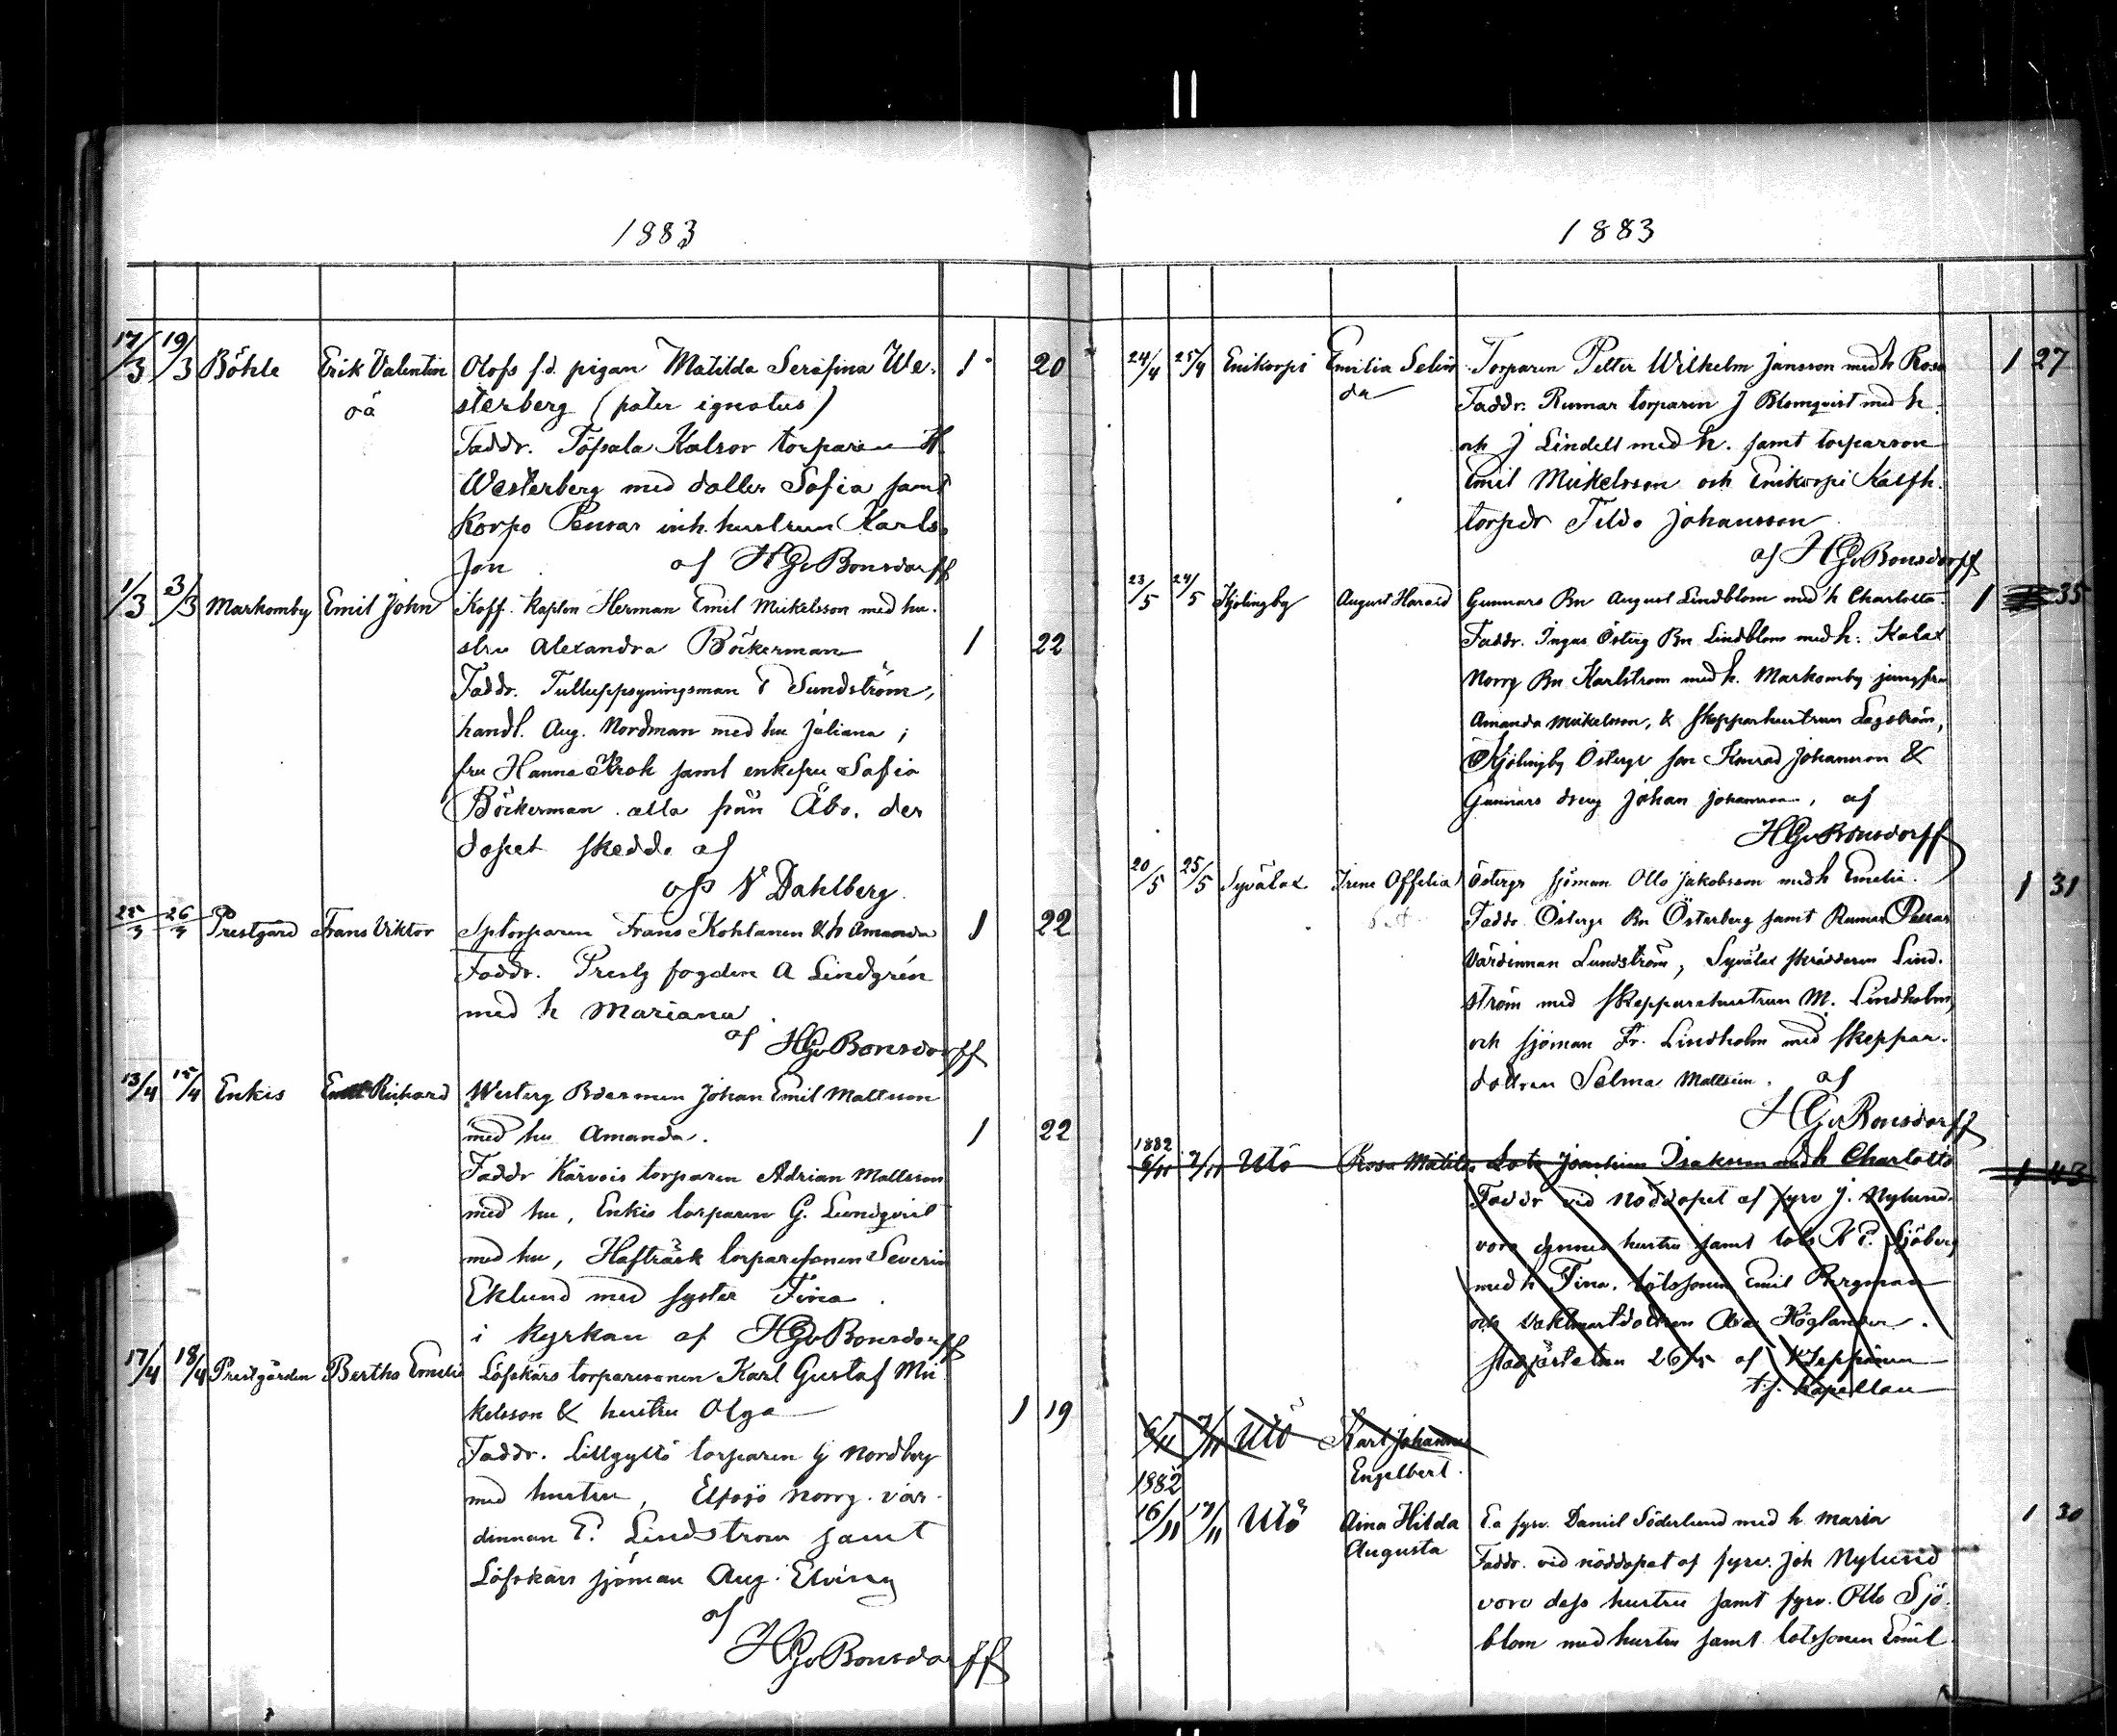 1883
17/3 19/3 Böhle Erik Valentin Olofs f.d. pigan Matilda Serafina We- 1 20
oä sterberg (pater ignotus)
Faddr. Töfsala Kalsor torparen H
Westerberg med dotter Sofia samt
Korpo Pensar inh. hustrun Karls-
son af HGvBonsdorff
1/3 3/3 Markomby Emil John Koff. kapten Herman Emil Mickelsson med hu-
stru Alexandra Böckerman 1 22
Faddr. Tulluppsyningsman Sundström,
handl. Aug. Nordman med hu Juliana;
fru Hanna Krok samt enkefru Sofia
Böckerman alla från Åbo. der
dopet skedde af
N Dahlberg
25/3 26/3 Prestgård Frans Viktor Sptorparen Frans Kohtanen & h Amanda 1 22
Faddr. Prestg fogden A Lindgrén
med h Mariana
af HGvBonsdorff
13/4 15/4 Enkis Richard Westerg Bdesmen Johan Emil Mattsson
med hu Amanda. 1 22
Faddr Kärvois torparen Adrian Mattsson
med hu, Enkis torparen G. Lundqvist
med hu, Hafträsk torparesonen Severin
Eklund med syster Fina.
i kyrkan af HGvBonsdorff
17/4 18/4 Prestgården Bertha Emelie Löfskärs torparesonen Karl Gustaf Mi-
kelsson & hustru Olga 1 19
Faddr. Lillgyttö torparen G Nordberg
med hustru, Elfsjö norrg. vär-
dinnan E. Lindstrom samt
Löfskärs sjöman Aug. Elving
af
HGvBonsdorff
1883
24/4 25/4 Enikorpi Emilia Selin- Torparen Petter Wilhelm Jansson med h Rosa 1 27
da Faddr. Rumar torparen J Blomqvist med h.
och J Lindell med h. samt torparson
Emil Mickelsson och Enikorpi
torpdr Tilda Johansson
af HGvBonsdorff
23/5 24/5 Hjelingby August Harald Gunnars Bn August Lindblom med h Charlotta. 1 35
Faddr. Ingas Österg Bn Lindblom med h. Kalax
Norrg Bn Karlstrom med h. Markomby jungfru
Amanda Mickelsson, & skepparhustrun Lagström,
Hjelingby Östergs son Konrad Johansson &
Gunnars dreng Johan Johansson, af
HGvBonsdorff
20/5 25/5 Syvälax Irene Offelia Östergs sjöman Otto Jakobsson med h Emelie. 1 31
Faddr Östergs Bn Österberg samt Rumar Pensar
värdinnan Lundström, Syvälax skräddaren Lind-
ström med skepparehustrun M. Lindholm,
och sjöman Fr. Lindholm med skeppar-
dottren Selma Mattsson. af
HGvBonsdorff
1882
6/11 7/11 Utö Rosa Matilda Lots Joachim Isaksson med h Charlotta 1 43
Faddr vid nöddopet af fyrv J. Nylund
voro dennes hustru samt lots K E. Sjöberg
med h Fina. lotssonen Emil Bergman
och vaktmastdottren Höglander.
stadfästelsen 26/5 af K Seppänen
t.f. kapellan
6/11 7/11 Utö Karl Johannes
Engelbert.
1882
16/11 17/11 Utö Aina Hilda E.o fyrv. Daniel Söderlund med h. Maria 1 30
Augusta Faddr. vid nöddopet af fyrv. Joh Nylund
voro dess hustru samt fyrv. Otto Sjö-
blom med hustru samt lotssonen Emil